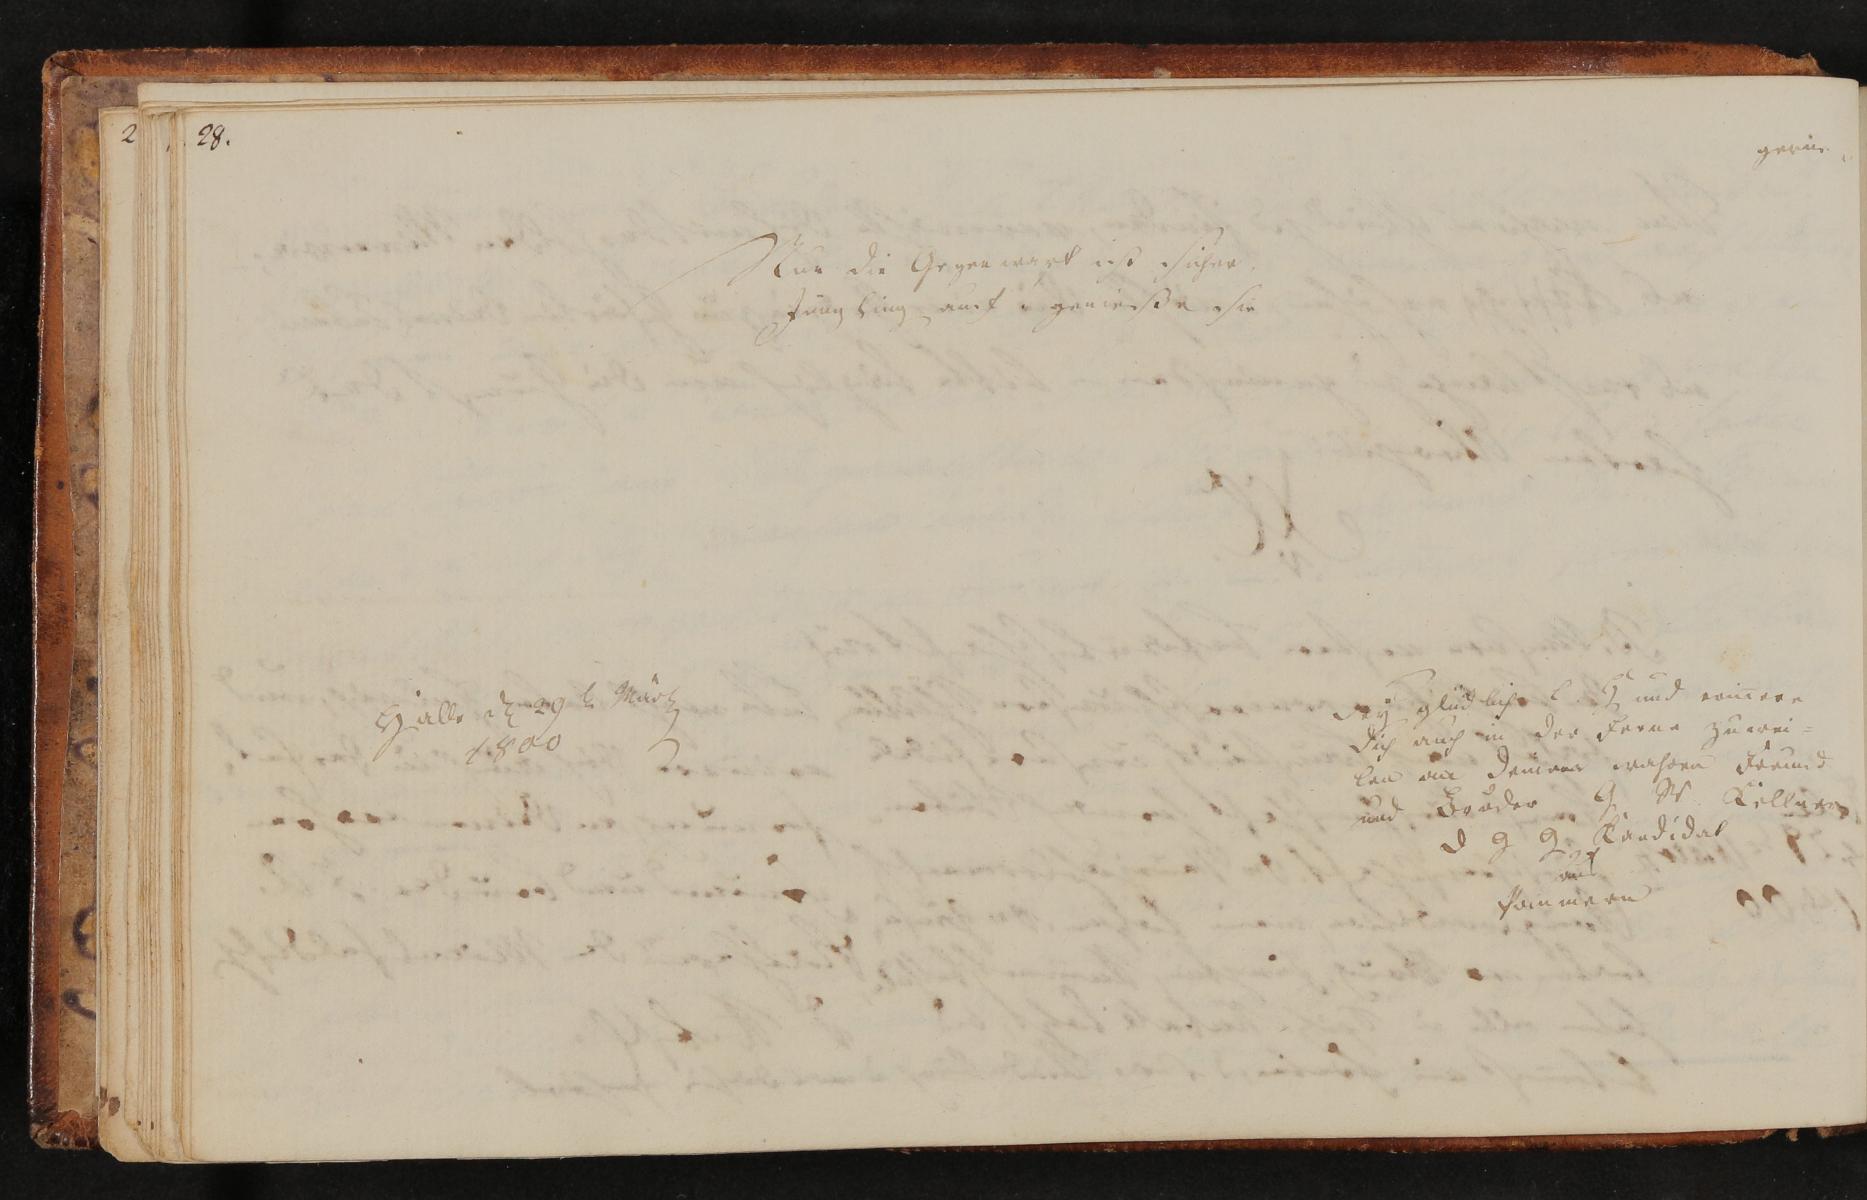 28.
2
Nur die Gegenwart ist sicher,
Jüngling auf u genieße sie
Halle d 29 t März
1800
Sey glücklich l. H und erinnere
dich auch in der Ferne zuwei=
len an deinen wahren Freund
und Bruder G W Kellner
d G G Kandidat
aus
Pommern